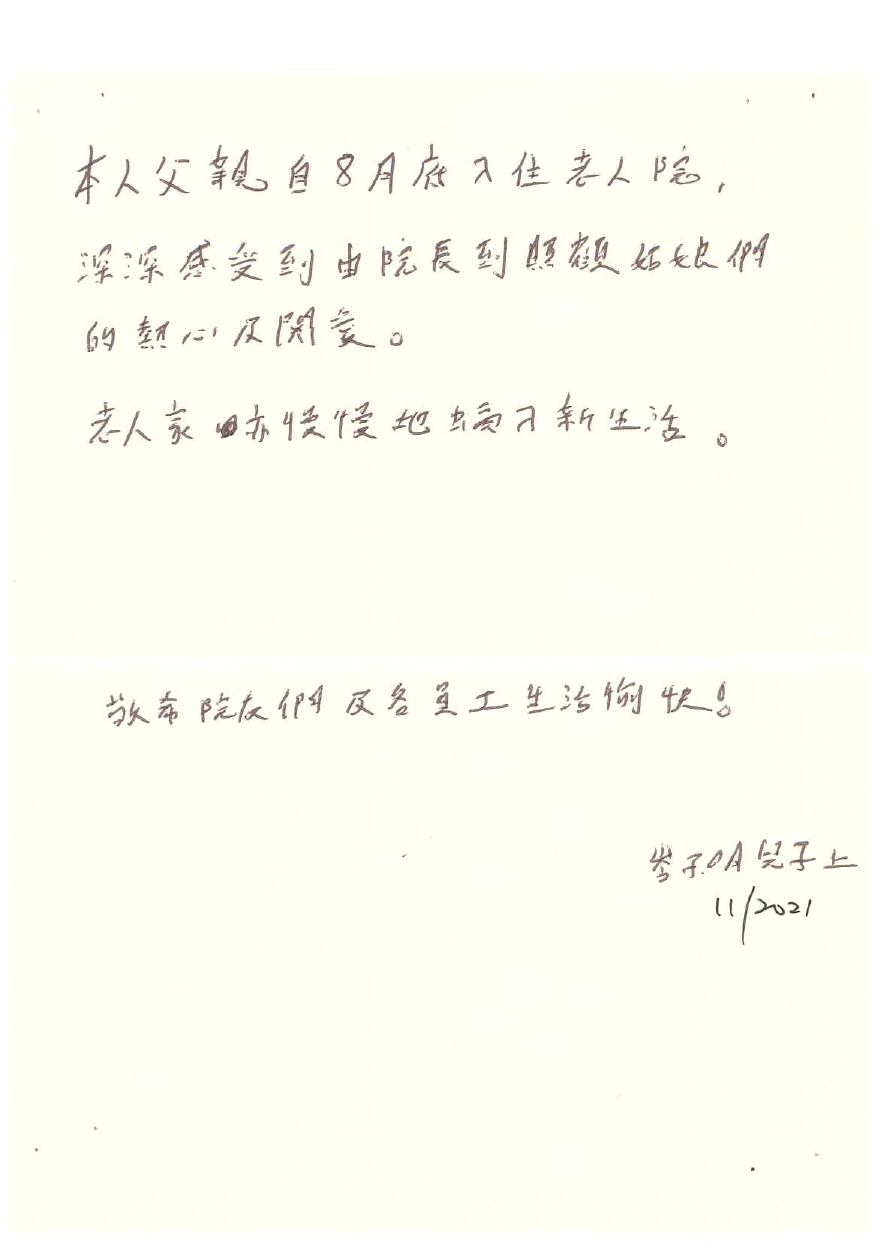 本人父親自8月底入住老人院，
深深感受到由院長到照顧姑娘們
的熱心及關愛。
老人家亦慢慢地適習新生活。
敬希院友們及各員工生活愉快!
岑子明兒子上
11/2021